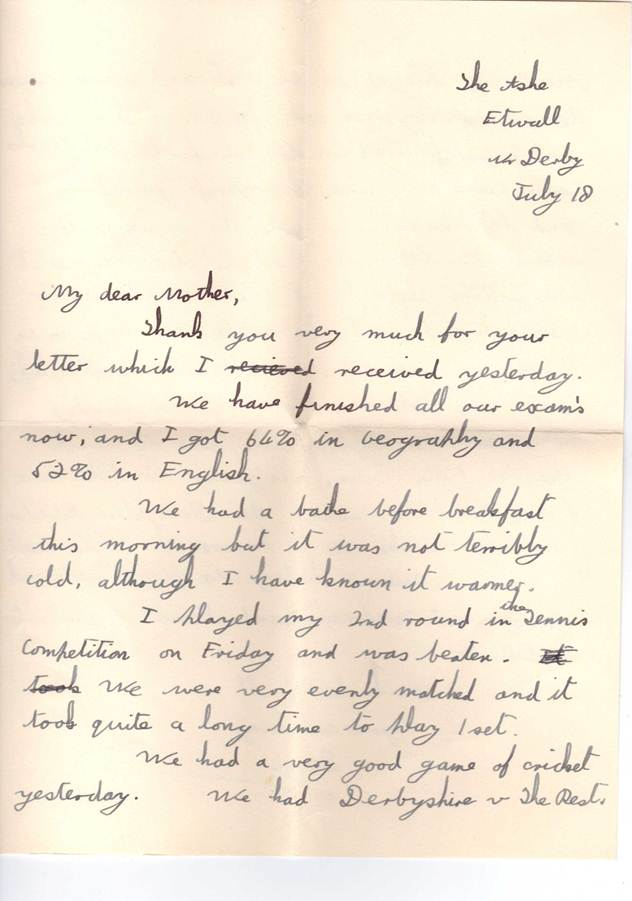 The Ashe
Etwall
Nr Derby
July 18
My dear Mother,
Thank you very much for your
letter which I recieved received yesterday.
We have finished all our exam's
now; and I got 64% in Geography and
52% in English.
We had a bathe before breakfast
this morning but it was not terribly
cold, although I have known it warmer.
I played my 2nd round in the Tennis
Competition on Friday and was beaten. It
took We were very evenly matched and it
took quite a long time to play 1 set.
We had a very good game of cricket
yesterday. We had Derbyshire v The Rest.